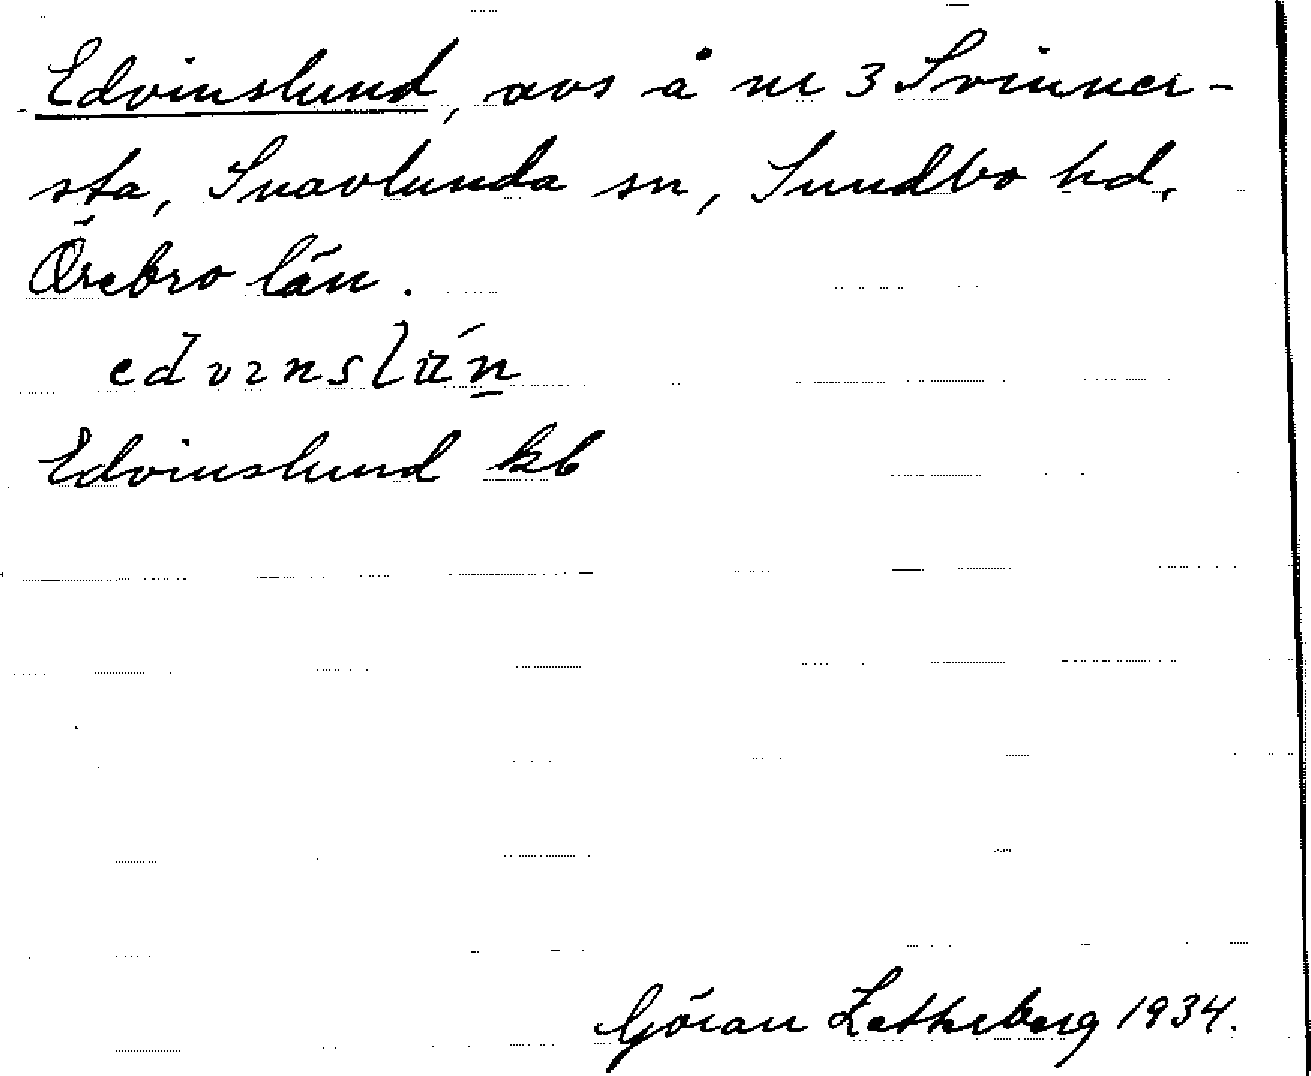 Edvinslund, avs å nr 3 Svinner-
sta, Snavlunda sn, Sundbo hd,
Örebro län.
Edvinslund kb
Göran Zetherberg 1934.